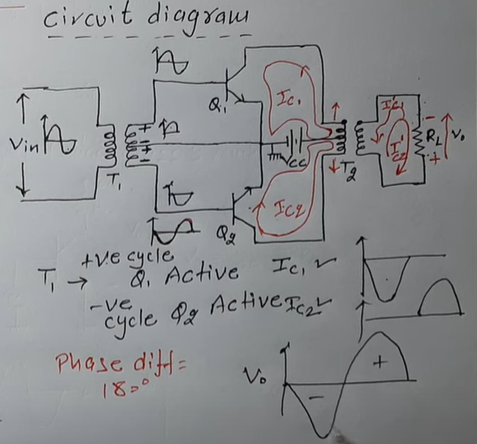 Circuit diagram
Vin
T1
+
-
+
-
Q1
Q2
Ic1
Ic2
Vcc
T2
I'c1
I'c2
-
RL
+
Vo
T1 → +ve cycle
Q1 Active Ic1 ✓
-ve
cycle Q2 Active Ic2 ✓
Phase diff =
180°
Vo
-
+